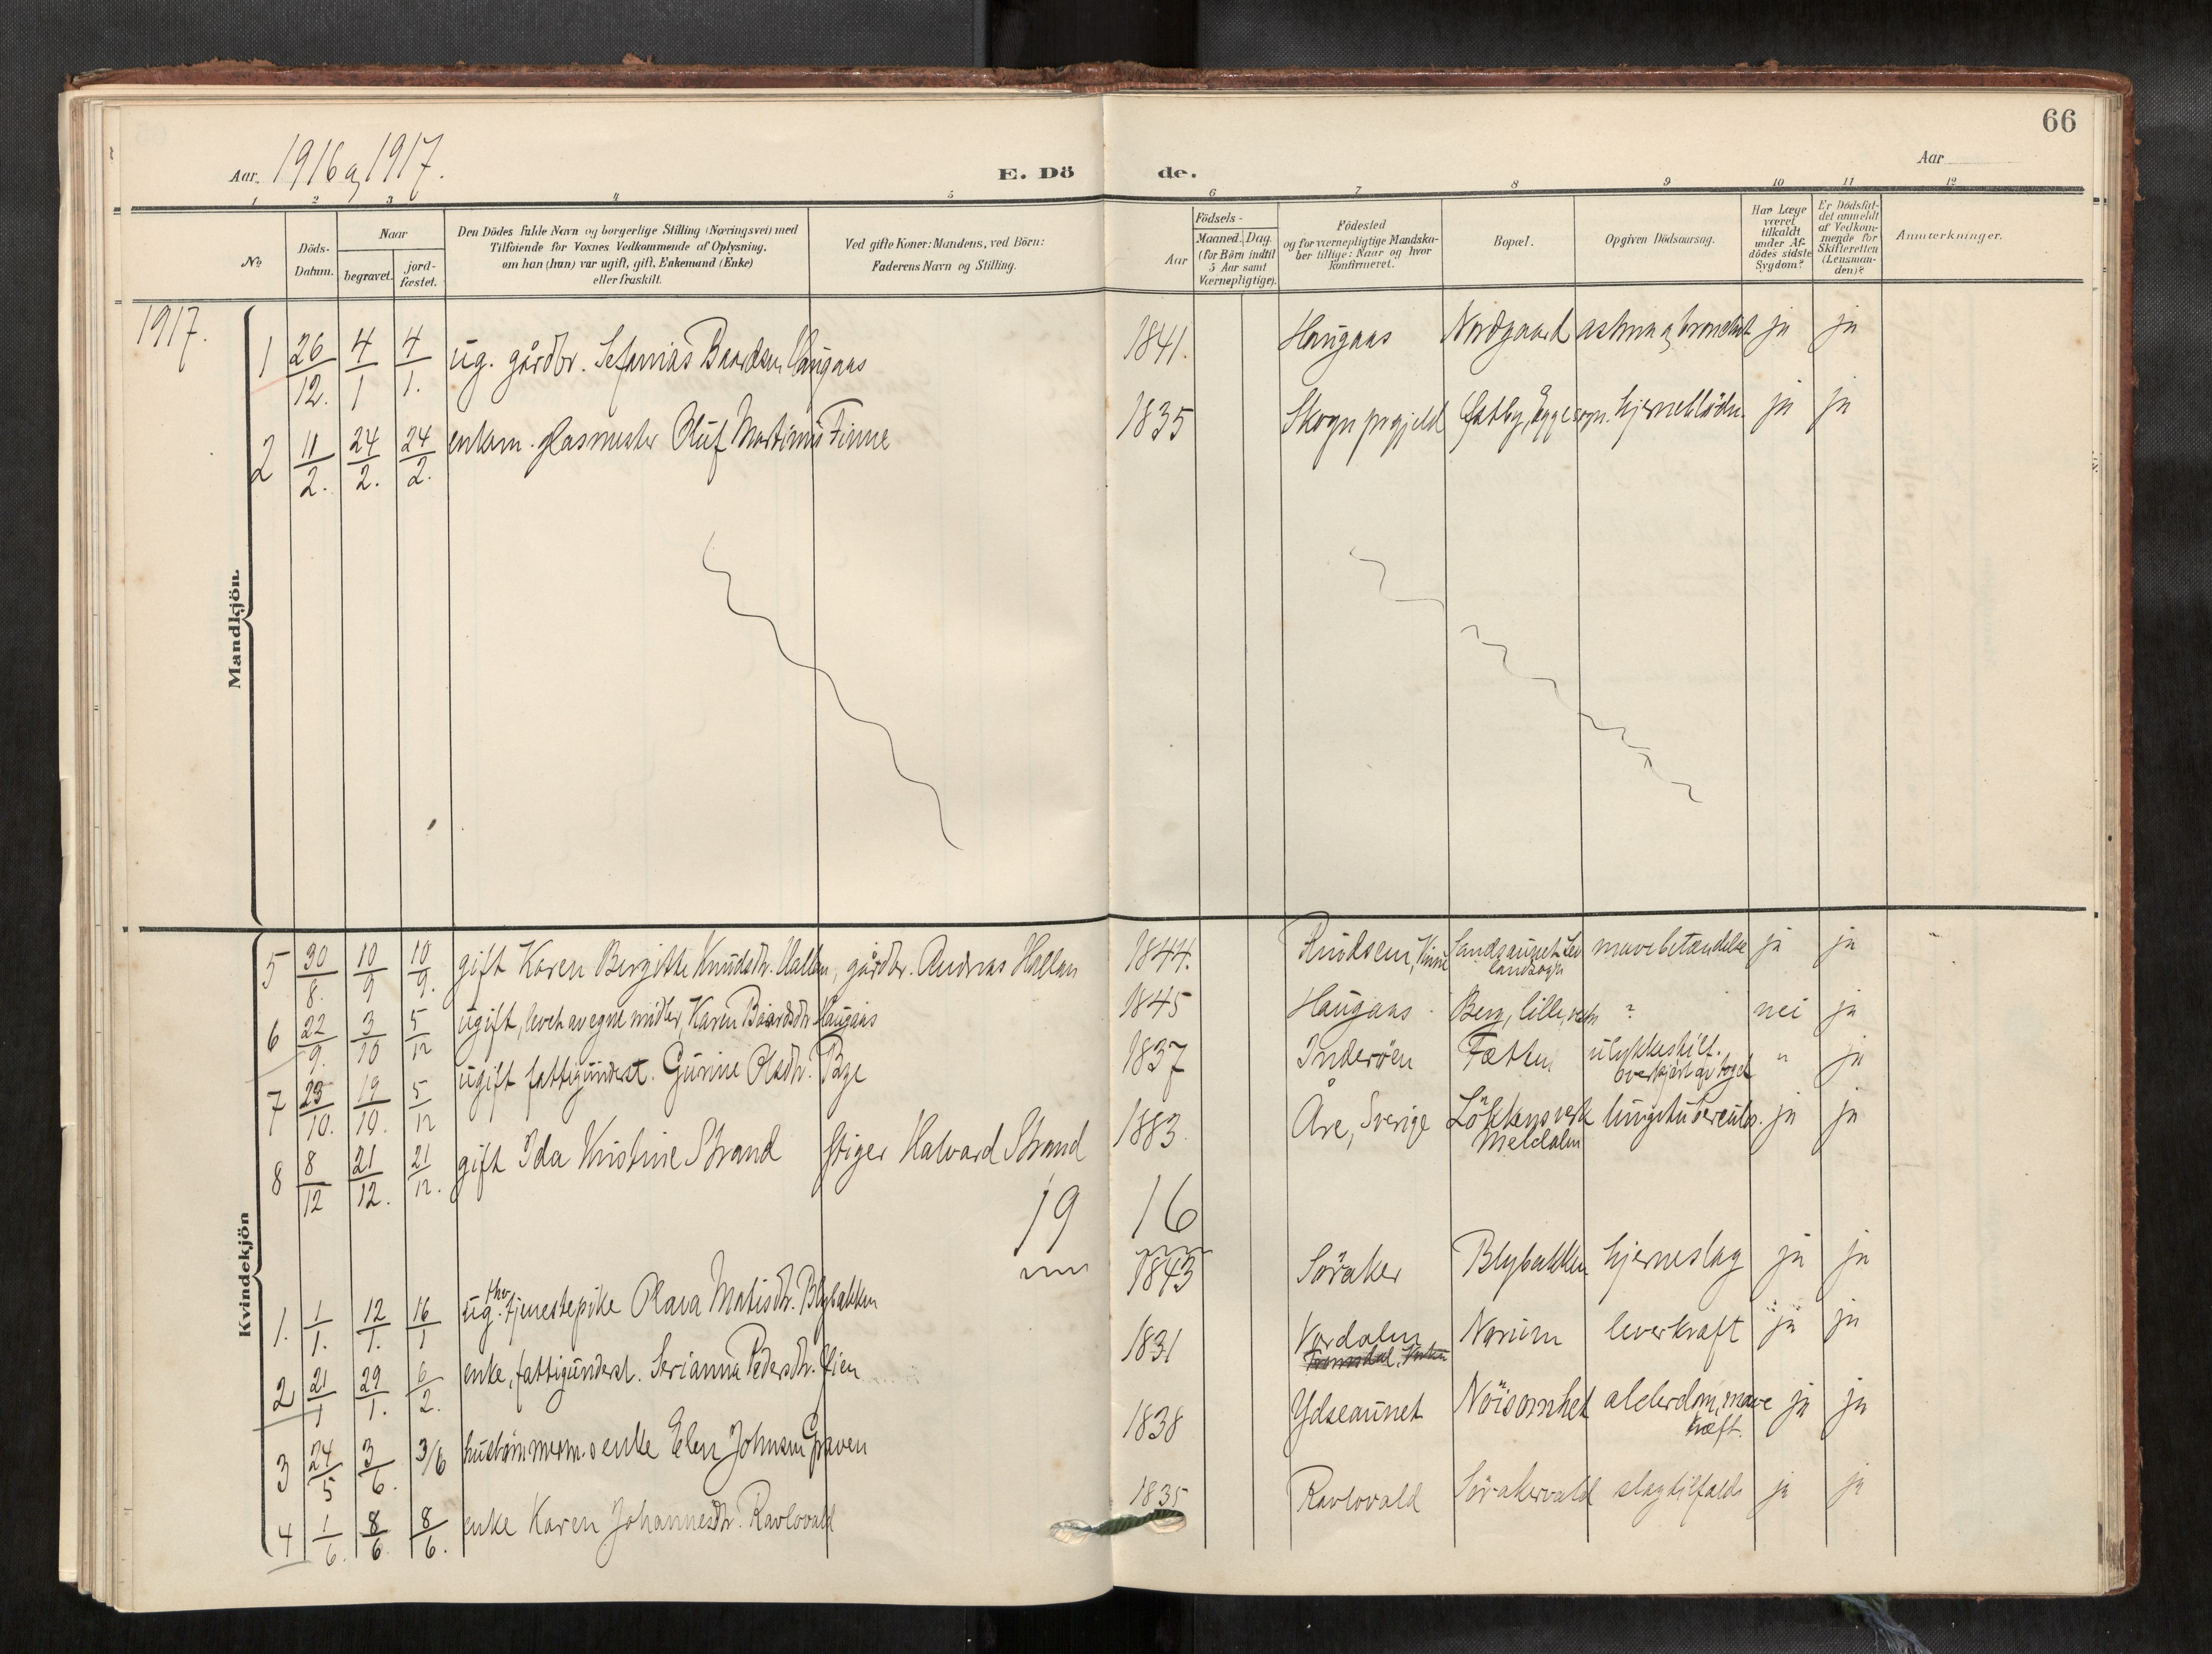 66
Aar. 1916 og 1917.
E. Dö de.
Aar
1 2 3 4 5 6 7 8 9 10 11 12
No.
Döds-Datum.
Naar
begravet.
jord-fæstet.
Den Dödes fulde Navn og borgerlige Stilling (Næringsvei) med
Tilföiende for Voxnes Vedkommende af Oplysning,
om han (hun) var ugift, gift, Enkemand (Enke)
eller fraskilt.
Ved gifte Koner: Mandens, ved Börn:
Faderens Navn og Stilling.
Födsels-
Aar
Maaned. Dag.
(for Börn indtil
5 Aar samt
Værnepligtige).
Födested
og for værnepligtige Mandska-
ber tillige: Naar og hvor
konfirmeret.
Bopæl.
Opgiven Dödsaarsag.
Har Læge
været
tilkaldt
under Af-
dödes sidste
Sygdom?
Er Dödsfal-
det anmeldt
af Vedkom-
mende for
Skifteretten
(Lensman-
den)?
Anmærkninger.
1917.
Mandkjön.
1 26/12. 4/1 4/1. ug. gårdbr. Sefanias Baardsen Haugaas 1841. Haugaas Nordgaard astma og bronchit ja ja
2 11/2. 24/2. 24/2. enkem. glasmester Oluf Martinus Finne 1835 Skogn prgjeld Egge sogn. hjerneblödn. ja ja
Kvindekjön
5 30/8. 10/9 10/9. gift Karen Bergitte Knudsdr. Hallan, gårdbr. Andreas Hallan 1844. landsogn mavebetændelse ja ja
6 22/9. 3/10 5/12 ugift, levet av egne midler, Karen Baardsdr. Haugaas 1845 Haugaas Berg, lille, ? nei ja
7 23/10. 19/10. 5/12 ugift fattigunderst. Gurine Olsdr. Bye 1837 Inderöen Fætten ulykkestilf.
overkjört av toget " ja
8 8/12 21/12. 21/12. gift Ida Kristine Strand Stiger Halvard Strand 1883. Åre, Sverige Lökkens verk
Meldalen lungetuberculos. ja ja
19 16
1. 1/1. 12/1. 16/1 ug. fhv. tjenestepike Olava Matisdr. Blybakken 1843 Söraker Blybakken hjerneslag ja ja
2 21/1 29/1. 6/2. enke, fattigunderst. Serianna Pedersdr. Lien 1831 Værdalen Norum leverkræft ja ja
3 24/5 3/6. 3/6 enke Elen Johnsen Graven 1838 Ydseaunet Nöisomhet alderdom, mave
kræft. ja ja
4 1/6. 8/6 8/6. enke Karen Johannesdr. Ravlovald 1835 Ravlovald Sörakervald slagtilfælde ja ja